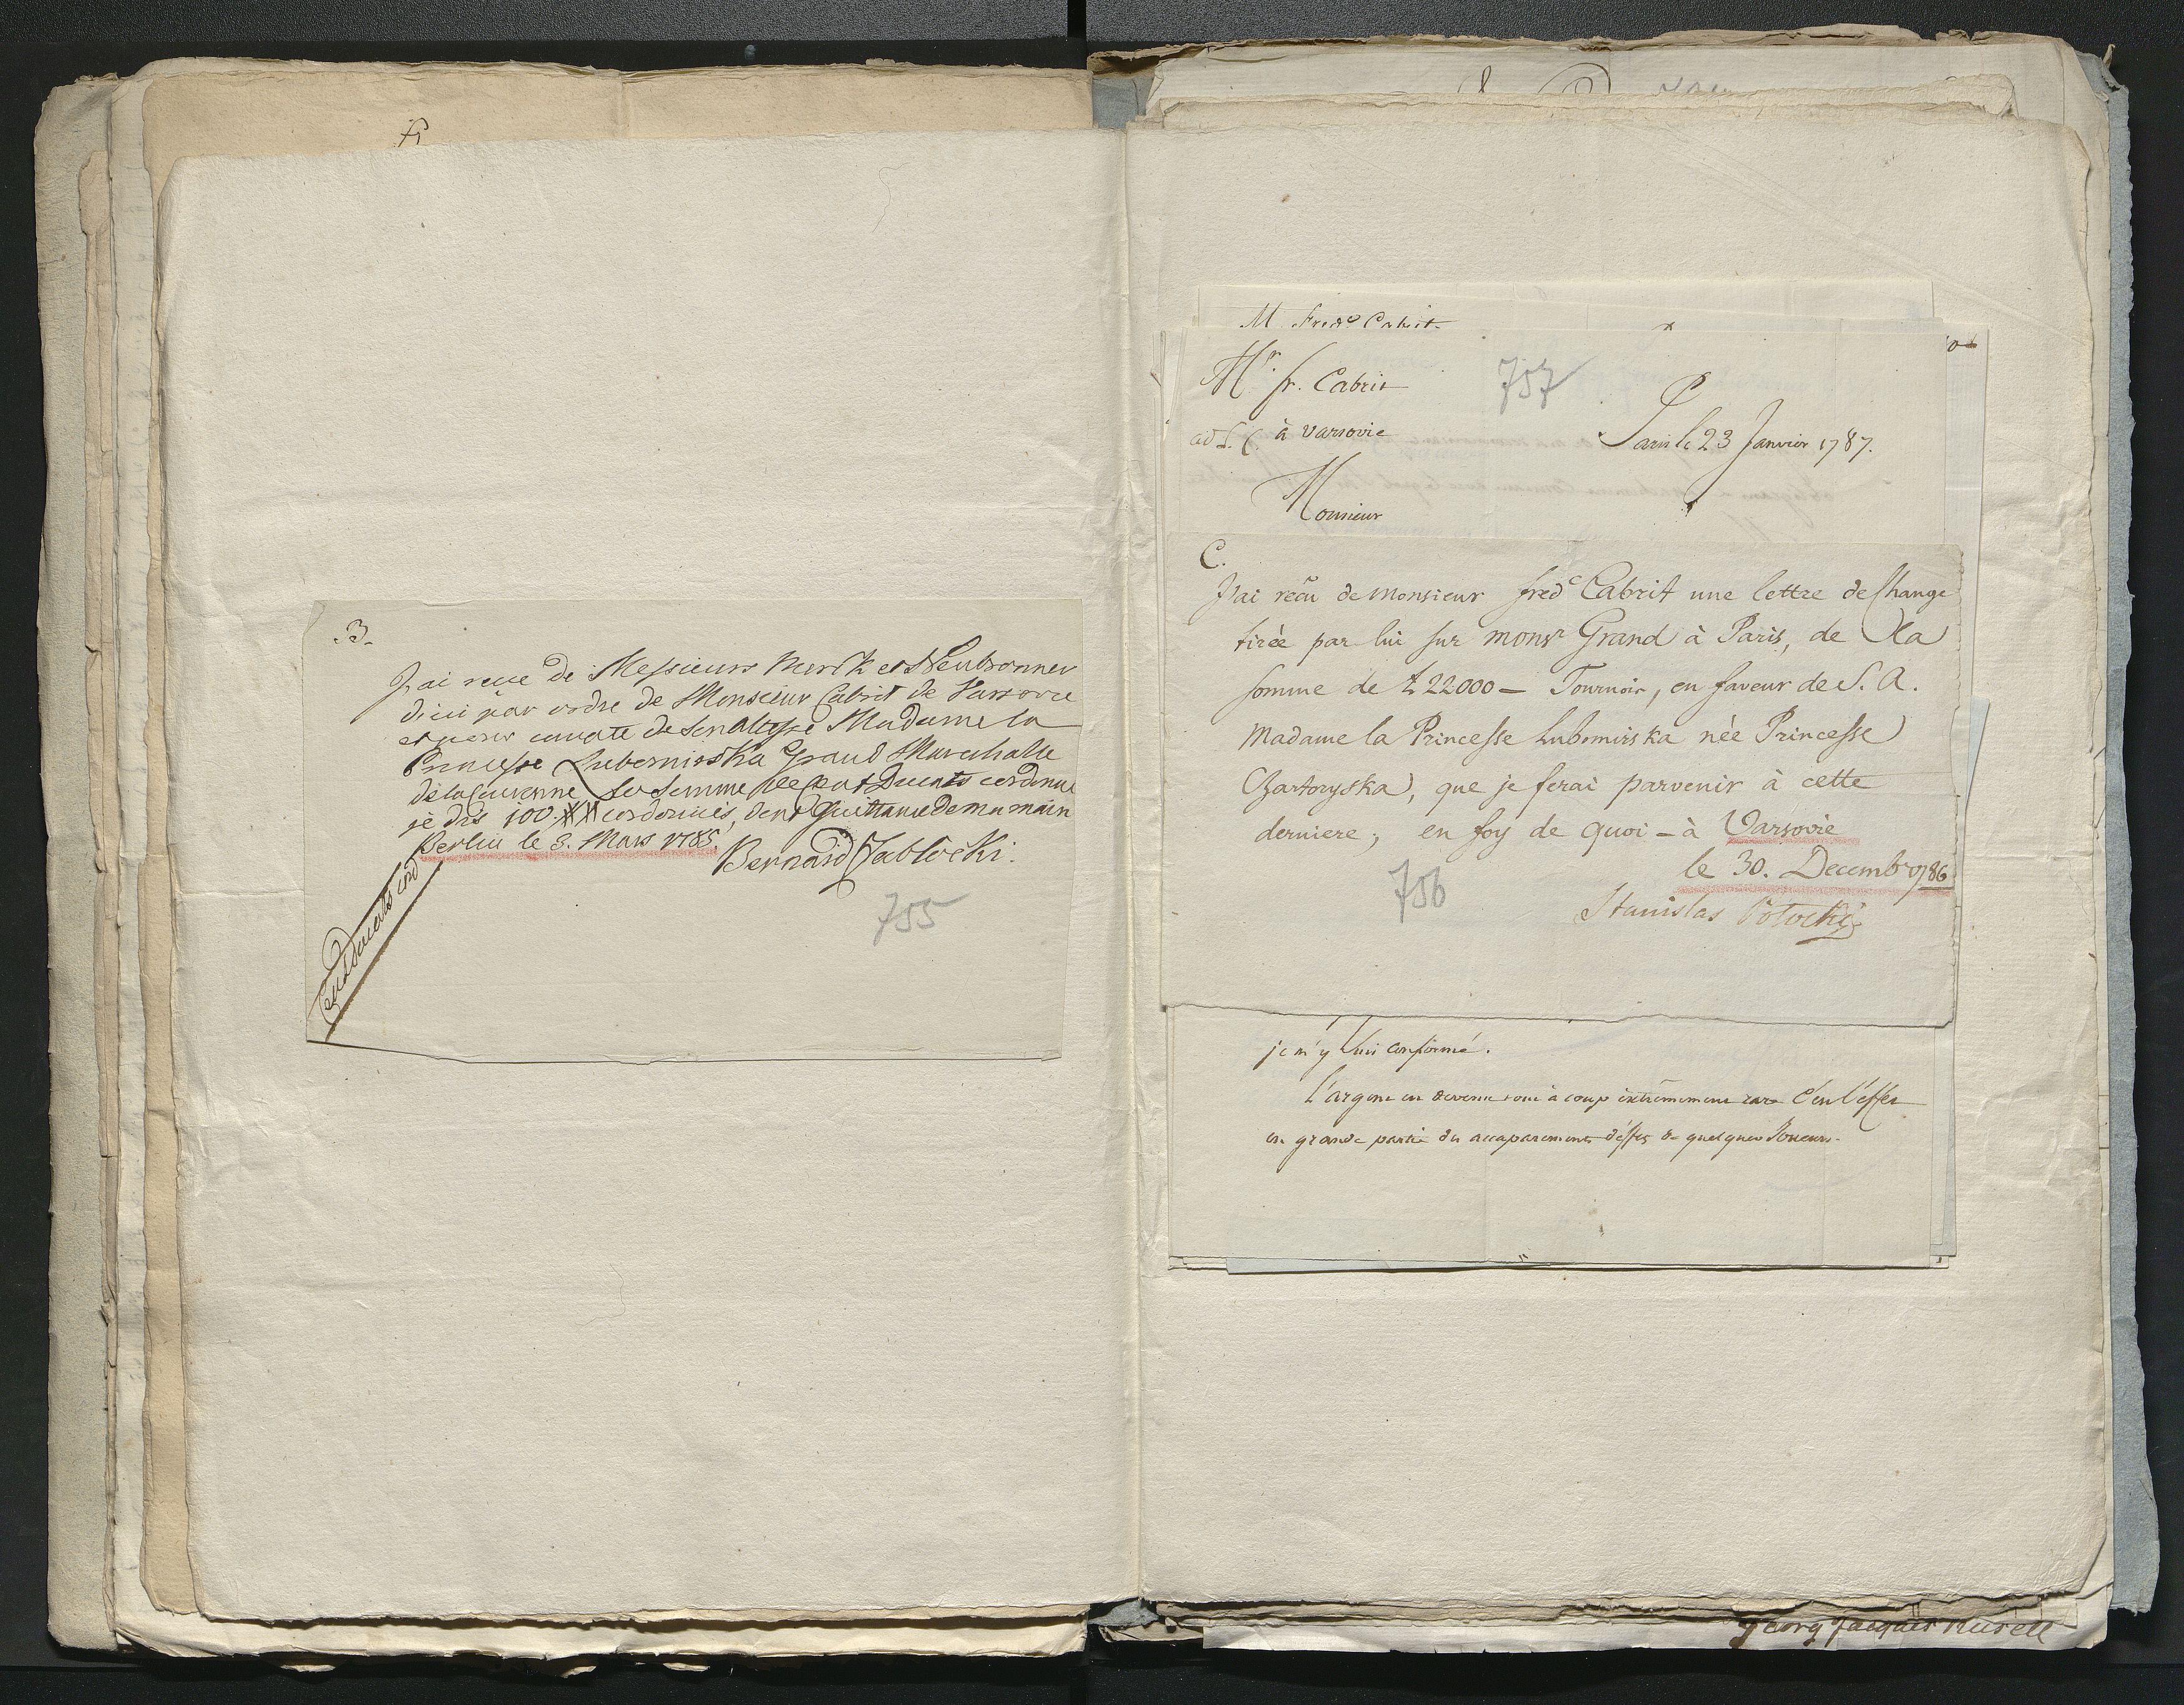 3.
J'ai reçue de Messieurs Merck et Neubronner
d'ici par ordre de Monseiur Cabrit de Varsovie
et pour compte de Son Altesse Madame la
Princesse Lubomirska Grand Marechalle
de la Couronne la Somme de Cent Ducats cordonné
je dis 100. cordonnés, dont Quittance de ma main
Berlin le 3. Mars 1785.
Bernard Jablocki.
Cent ducats cord
755
M Fredc Cabrit
Mr. fr. Cabrit
757
à Varsovie
Paris le 23 Janvier 1787.
Monsieur
C.
J'ai reçu de Monsieur fredc Cabrit une lettre de Change
tirée par lui sur monsr Grand à Paris, de la
somme de ₶ 22000 — Tournois, en faveur de S. A.
Madame la Princesse Lubomirska née Princesse
Czartoryska, que je ferai parvenir à cette
derniere; en foy de quoi - à Varsovie
le 30. Decembr 1786
756
Stanislas Potocki
je m'y suis conformé.
L'argent est devenu tout à coup extrêmement rare c'est l'effet
en grande partie des accaparements d'effets de quelques Joueurs.
Georg Jacques